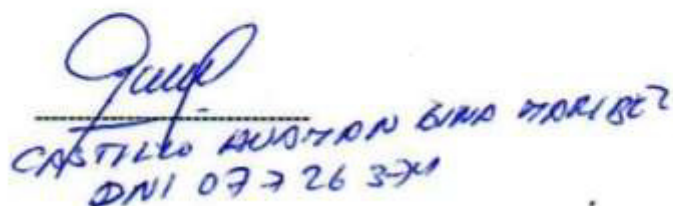 CASTILLO HUAMAN GINA MARIBEL
DNI 07726374